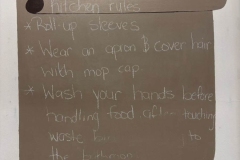 kitchen rules
* Roll-up sleeves
* Wear an apron & cover hair
with mop cap
* Wash your hands before
handling food after touching
waste to
the